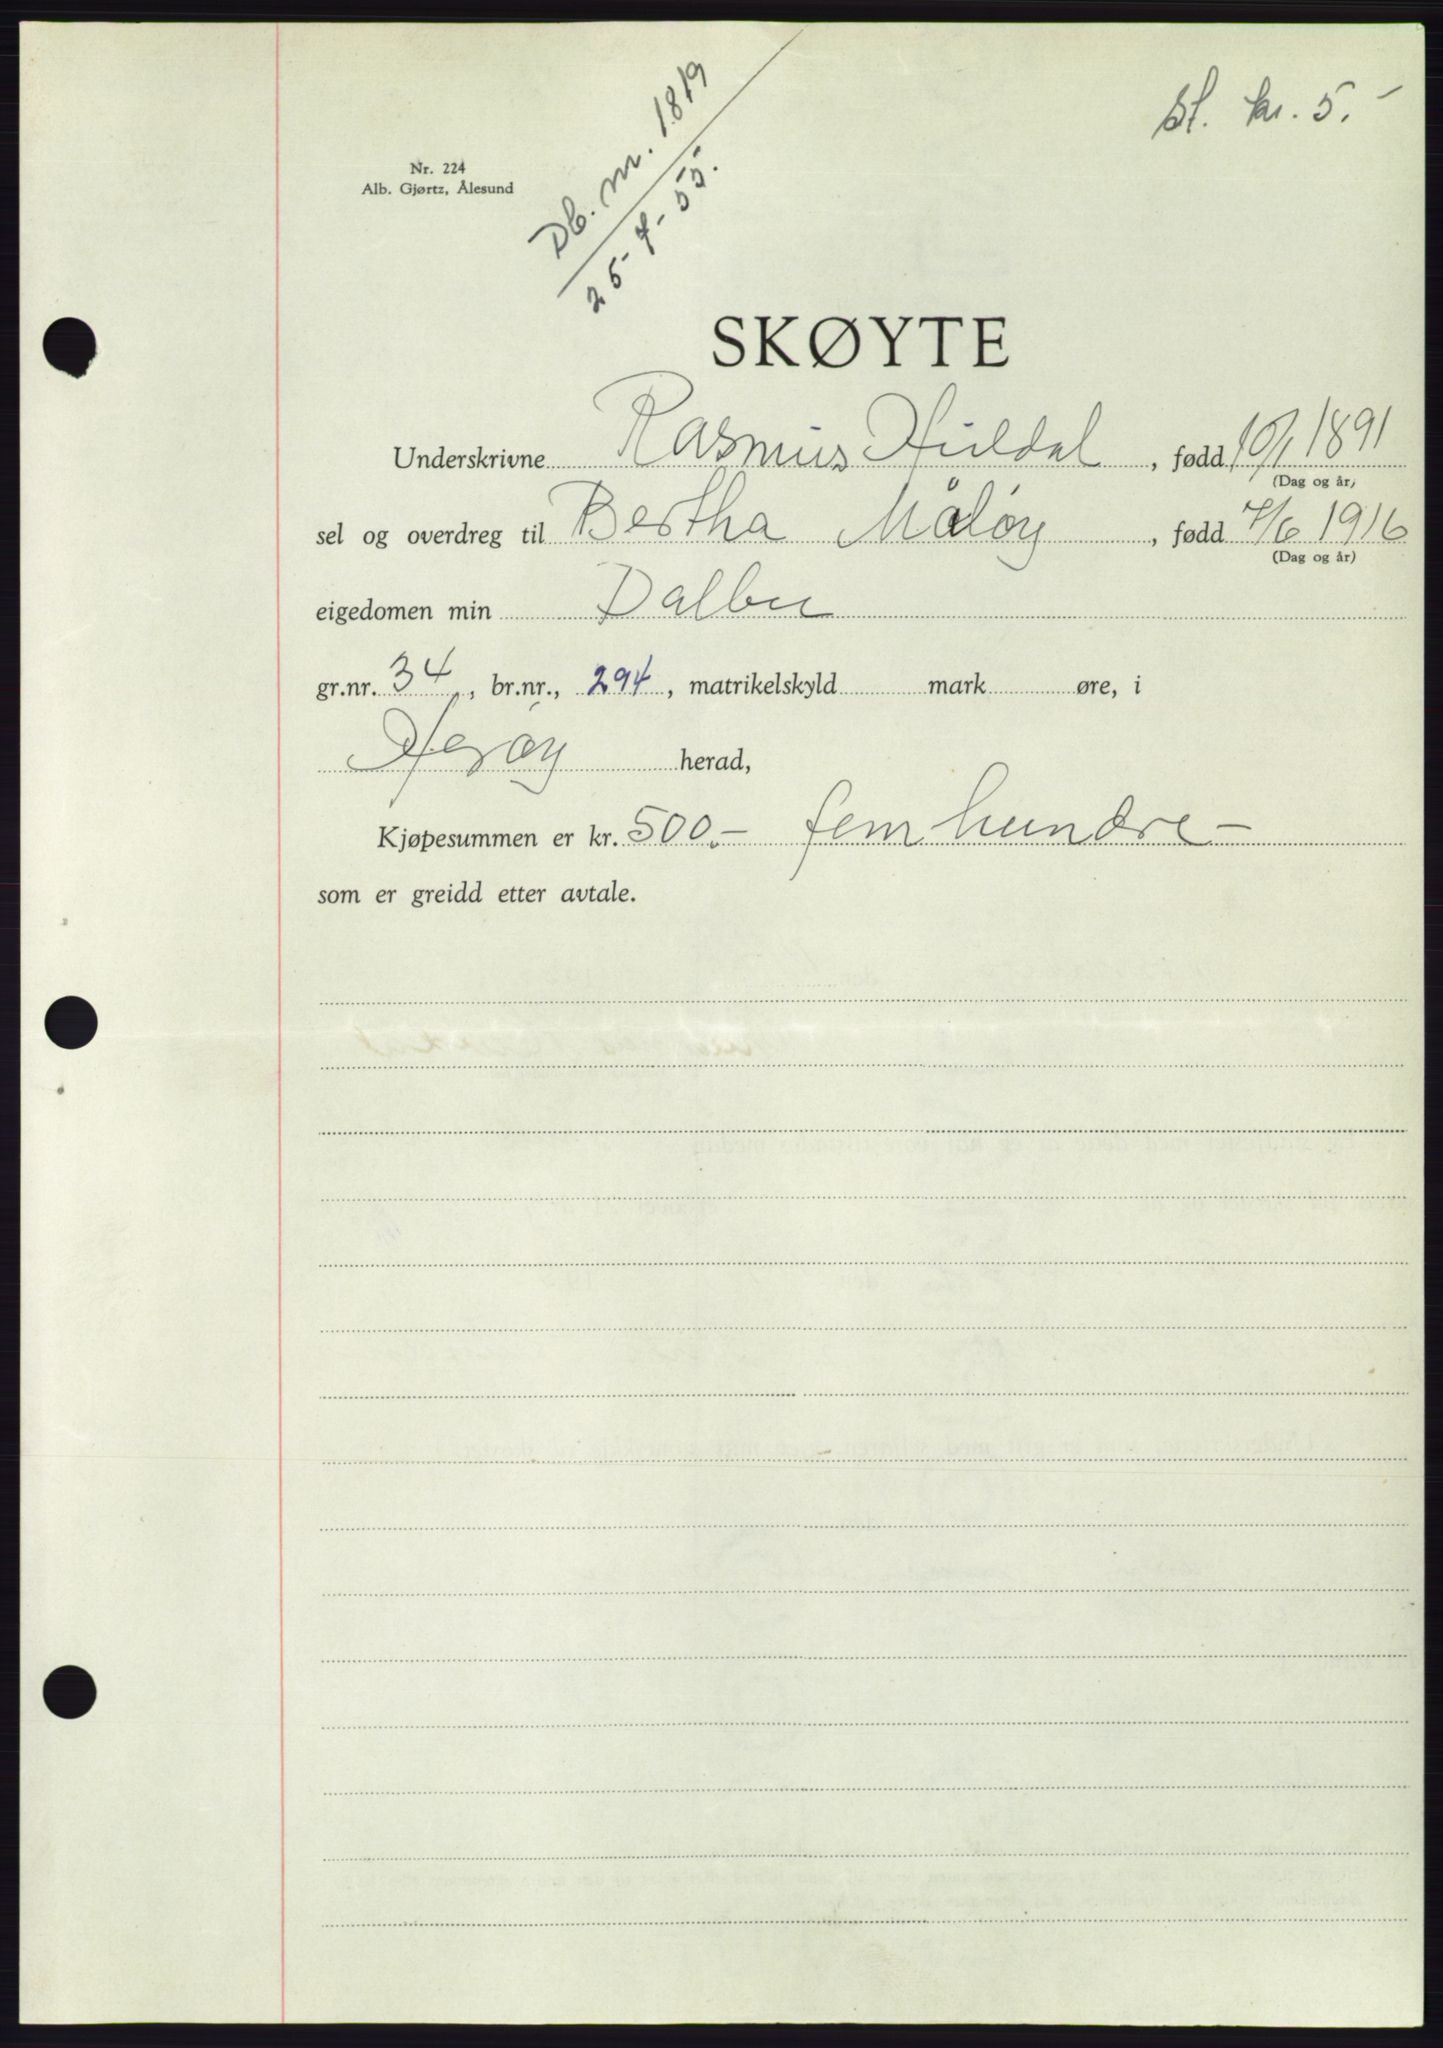 St. kr. 5.-
Db. nr. 1819
25-7-55.
Nr. 224
Alb. Gjørtz, Ålesund
SKØYTE
Underskrivne Rasmus Huldal, fødd 10/1 1891
(Dag og år)
sel og overdreg til Bertha Måløy, fødd 7/6 1916
(Dag og år)
eigedomen min Dalbu
gr.nr. 34, br.nr., 294, matrikelskyld mark øre, i
Herøy herad,
Kjøpesummen er kr. 500.- fem hundre-
som er greidd etter avtale.